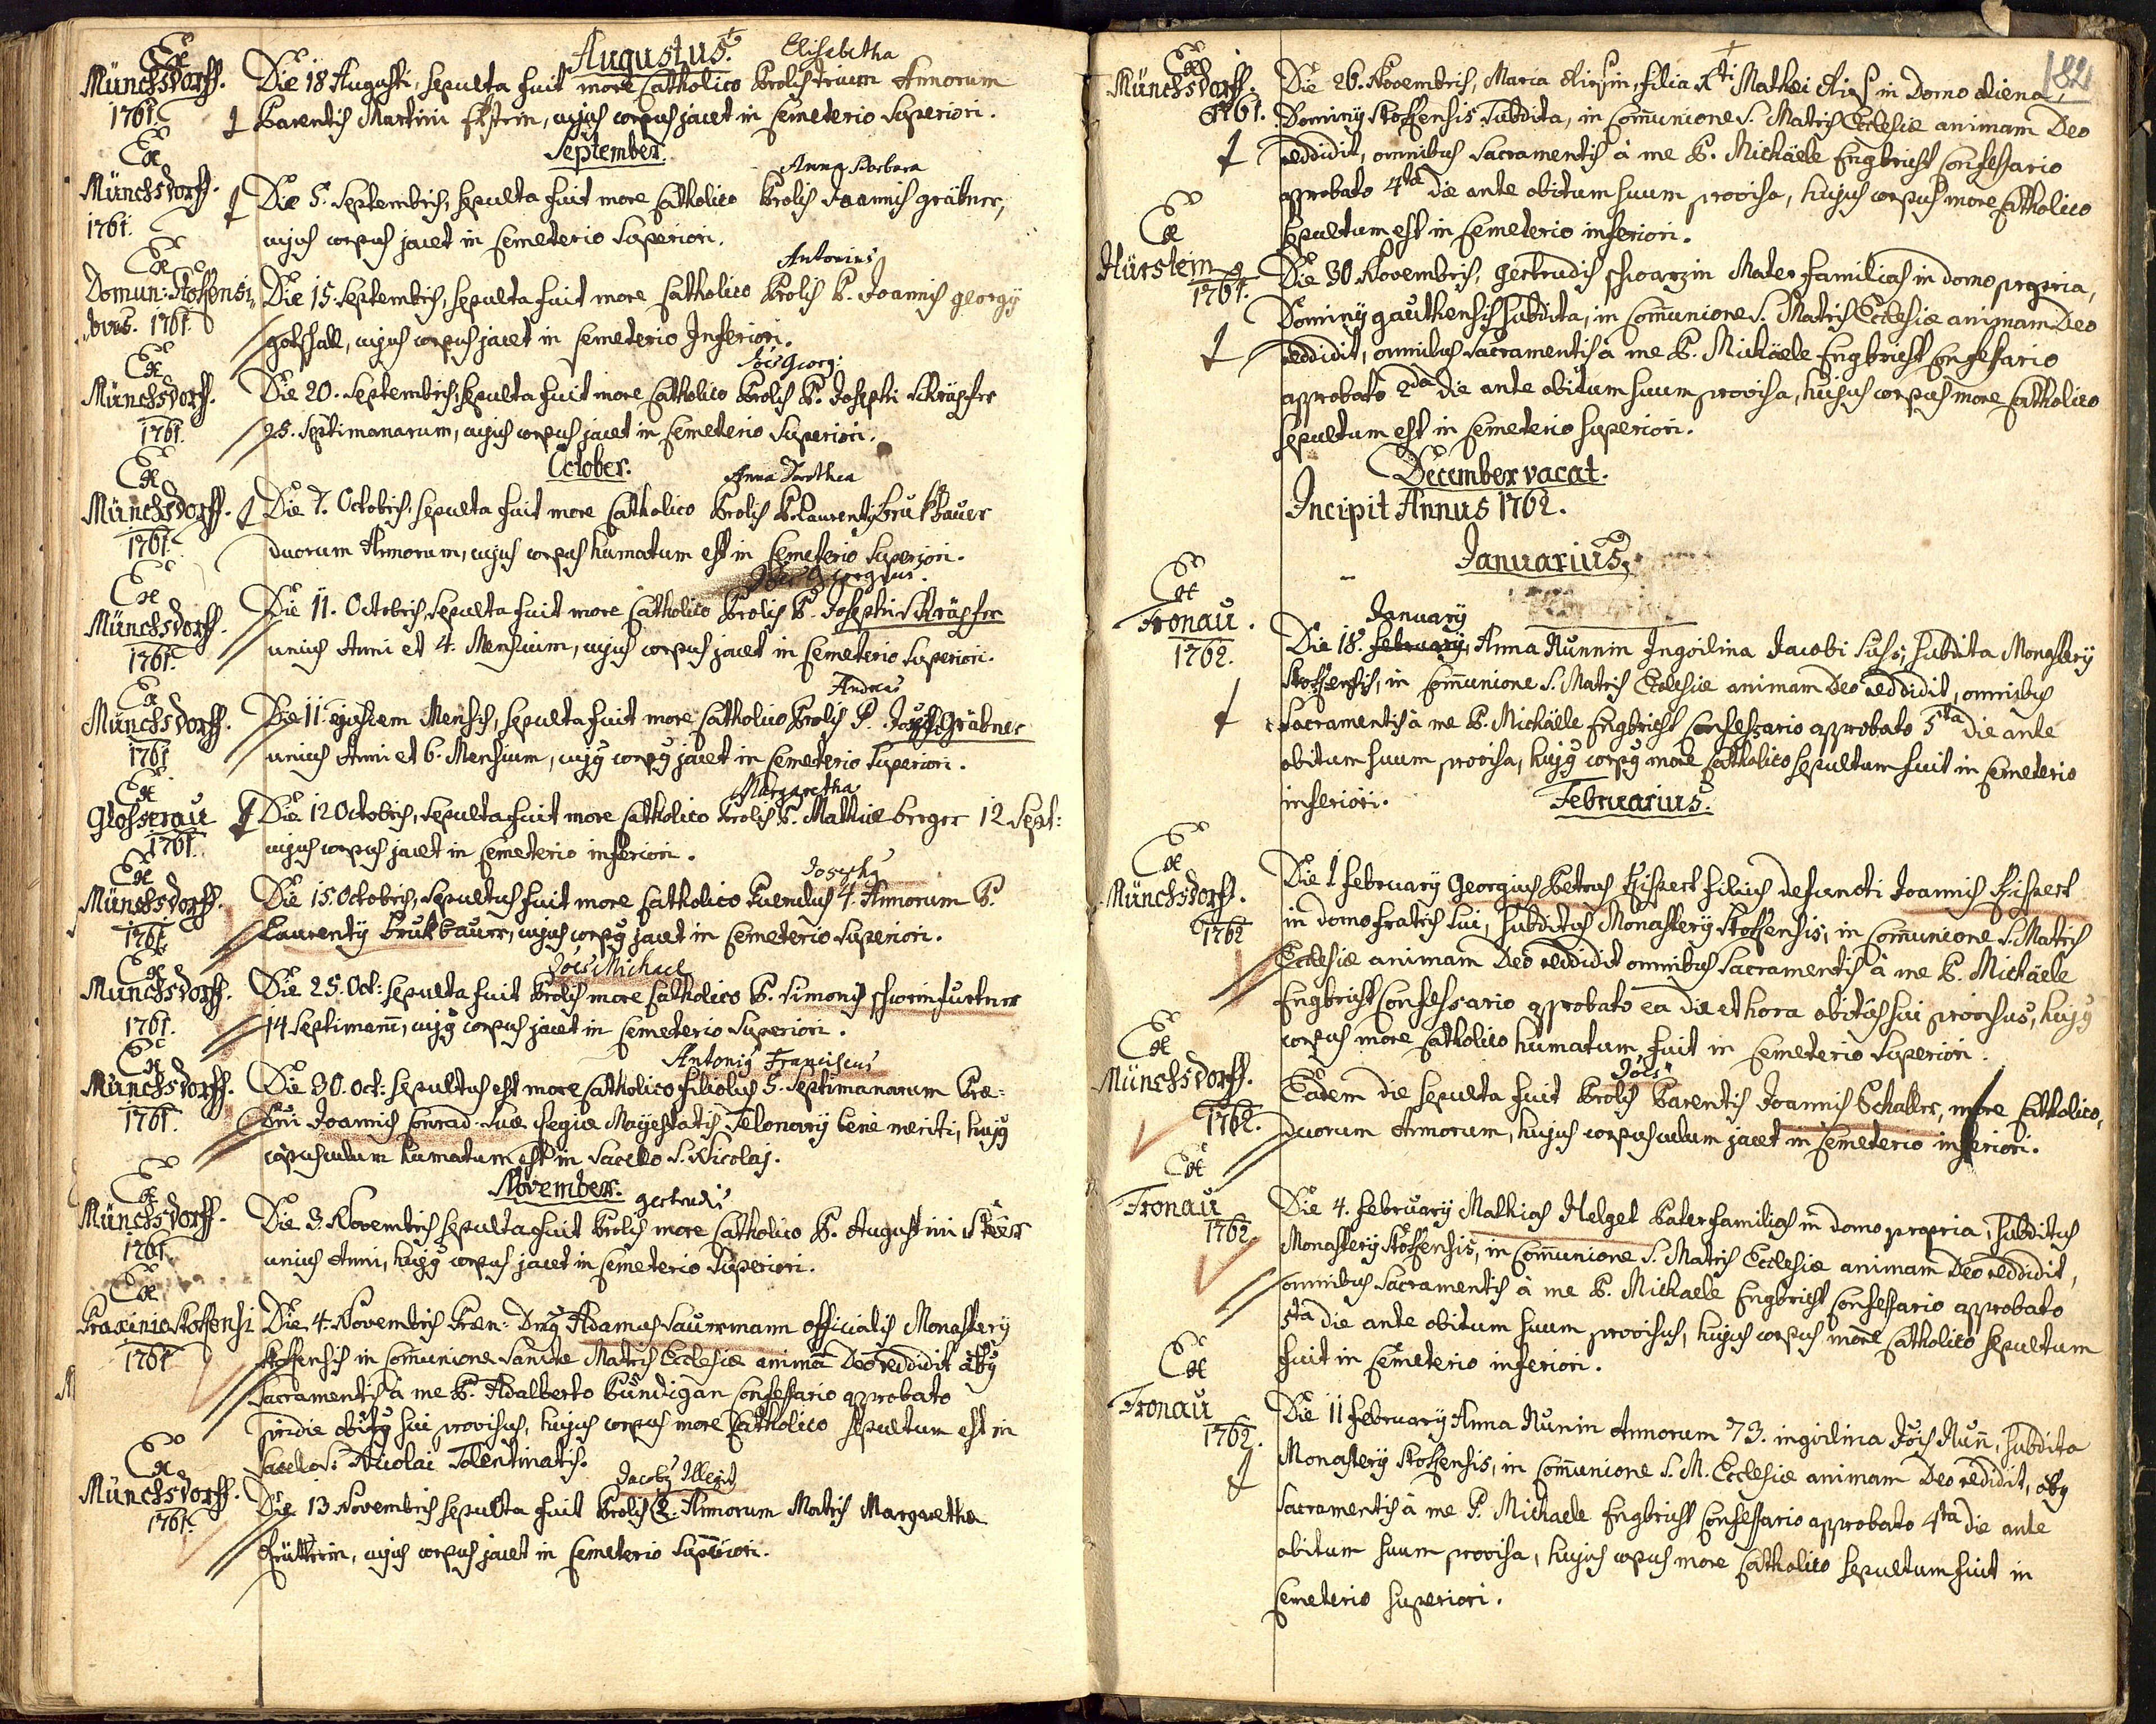 Augustus.
Ex
Münchsdorff.
1761.
Elisabetha
Die 18 Augusti, sepulta fuit more Catholico Prolis trium Annorum
Parentis Martini, cujus corpus jacet in Cemeterio Superiori.
September.
Ex
Münchsdorff.
1761.
Anna Barbara
Die 5. Septembris, sepulta fuit more Catholico Prolis Joannis gräbner,
cujus corpus jacet in Cemeterio Superiori.
Ex
1761.
Antonius
Die 15. Septembris, sepulta fuit more Catholico Prolis P. Joannis georgÿ
gotschall, cujus corpus jacet in Cemeterio Inferiori.
Ex
Münchsdorff.
1761.
Jões Georg:
Die 20. Septembris, sepulta fuit more Catholico Prolis P. Josephi Schräpfer
25. Septimanarum, cujus corpus jacet in Cemeterio Superiori.
October.
Ex
Münchsdorff.
1761.
Anna Dorothea
Die 7. Octobris, sepulta fuit more Catholico Prolis P. Laurentÿ brukbauer
duorum Annorum, cujus corpus humatum est in Cemeterio Superiori.
Ex
Münchsdorff.
1761.
Die 11. Octobris, sepulta fuit more Catholico Prolis P. Josephi Schräpfer
unius Anni et 4. Mensium, cujus corpus jacet in Cemeterio Superiori.
Ex
Münchsdorff.
1761
Andreas
Die 11. ejusdem Mensis, sepulta fuit more Catholico Prolis P. Gräbner
unius Anni et 6. Mensium, cujg corpg jacet in Cemeterio Superiori.
Ex
Glosserau
1761.
Margaretha
Die 12 Octobris, sepulta fuit more Catholico Prolis P. Mathiæ berger 12 Sept:
cujus corpus jacet in Cemeterio inferiori.
Ex
Münchsdorff.
1761.
Josephg
Die 15. Octobris, sepultus fuit more Catholico Puerulus 4. Annorum P.
Laurentÿ Brukbaurr, cujus corpg jacet in Cemeterio Superiori.
Ex
Münchsdorff.
1761.
Jões Michael
Die 25. Oct: sepulta fuit Prolis more Catholico P. Simonis schweinfurtner
14 Septimanar̃, cujg corpus jacet in Cemeterio Superiori.
Ex
Münchsdorff.
1761.
Antonig Franciscus
Die 30. Oct: sepultus est more Catholico filiolus 5. Septimanarum Præ=
Dñi Joannis Conrad Suæ Regiæ Mayestatis Telonarÿ bene meriti, hujg
corpusculum humatum est in Sacello S. Nicolaj.
November.
Ex
Münchsdorff.
1761.
gertrudis
Die 3. Novembris sepulta fuit Prolis more Catholico P. Augustini
unius Anni, hujg corpus jacet in Cemeterio Superiori.
Ex
1761
Die 4. Novembris Præn: Dng Adamus Saurrmann officialis Monasterÿ
Stoksensis in Communione Sanctæ Matris Ecclesiæ animã Deo reddidit õbg
Sacramentis à me P. Adalberto Pündigan Confessario approbato
pridie obitg sui provisus, hujus corpus more Catholico sepultum est in
Sacello S: Nicolai Tolentinatis.
Ex
Münchsdorff.
1761.
Die 13. Novembris sepulta fuit Prolis 2. Annorum Matris Margaretha
cujus corpus jacet in Cemeterio Superiori.
182
Ex
Münchsdorff.
1761.
Die 26. Novembris, Maria, filia Mathei in Domo aliena,
Dominÿ Stoksensis Subdita, in Communione S. Matris Ecclesiæ animam Deo
reddidit, omnibus Sacramentis à me P. Michäele Engbricht Confessario
approbato 4ta die ante obitum suum provisa, hujus corpus more Catholico
sepultum est in Cemeterio inferiori.
Ex
Hürstein
1761.
Die 30. Novembris, Gertrudis schwarzin Mater familias in domo propria,
Dominÿ gauthensis subdita, in Communione S. Matris Ecclesiæ animam Deo
reddidit, omnibus Sacramentis à me P. Michäele Engbricht Confessario
approbato 2da die ante obitum suum provisa, hujus corpus more Catholico
sepultum est in Cemeterio superiori.
December vacat.
Incipit Annus 1762.
Januarius.
Ex
Fronau.
1762.
Januarÿ
Die 18. Februarÿ, Anna Nunnin Ingvilina Jacobi subdita Monasterÿ
Stoksensis, in Communione S. Matris Ecclesiæ animam Deo reddidit, omnibus
Sacramentis à me P. Michäele Engbricht Confessario approbato 5ta die ante
obitum suum provisa, hujg corpg more Catholico sepultum fuit in Cemeterio
inferiori.
Februarius.
Ex
Münchsdorff.
1762
Die 1 februarÿ Georgius Petrus filius defuncti Joannis
in domo fratris sui, subditus Monasterÿ Stoksensis, in Communione S. Matris
Ecclesiæ animam Deo reddidit omnibus Sacramentis à me P. Michäele
Engbricht Confessario approbato ea die et hora obitus sui provisus, hujg
corpus more Catholico humatum fuit in Cemeterio Superiori.
Ex
Münchsdorff.
1762.
Jões
Eadem die sepulta fuit Prolis Parentis Joannis Schaller, more Catholico,
duorum Annorum, hujus corpusculum jacet in Cemeterio inferiori.
Ex
Fronau
1762.
Die 4. februarÿ Mathias Helget Pater familias in domo propria, subditus
Monasterÿ Stoksensis, in Communione S. Matris Ecclesiæ animam Deo reddidit,
omnibus Sacramentis à me P. Michaele Engbricht Confessario approbato
5ta die ante obitum suum provisus, hujus corpus more Catholico sepultum
fuit in Cemeterio inferiori.
Ex
Fronau
1762.
Die 11 februarÿ Anna Nunin Annorum 73. ingvilina Jõis Nuñ, subdita
Monasterÿ Stoksensis, in Communione S. M. Ecclesiæ animam Deo redidit, õbg
Sacramentis à me P. Michaele Engbricht Confessario approbato 4ta die ante
obitum suum provisa, hujus corpus more Catholico sepultum fuit in
Cemeterio superiori.